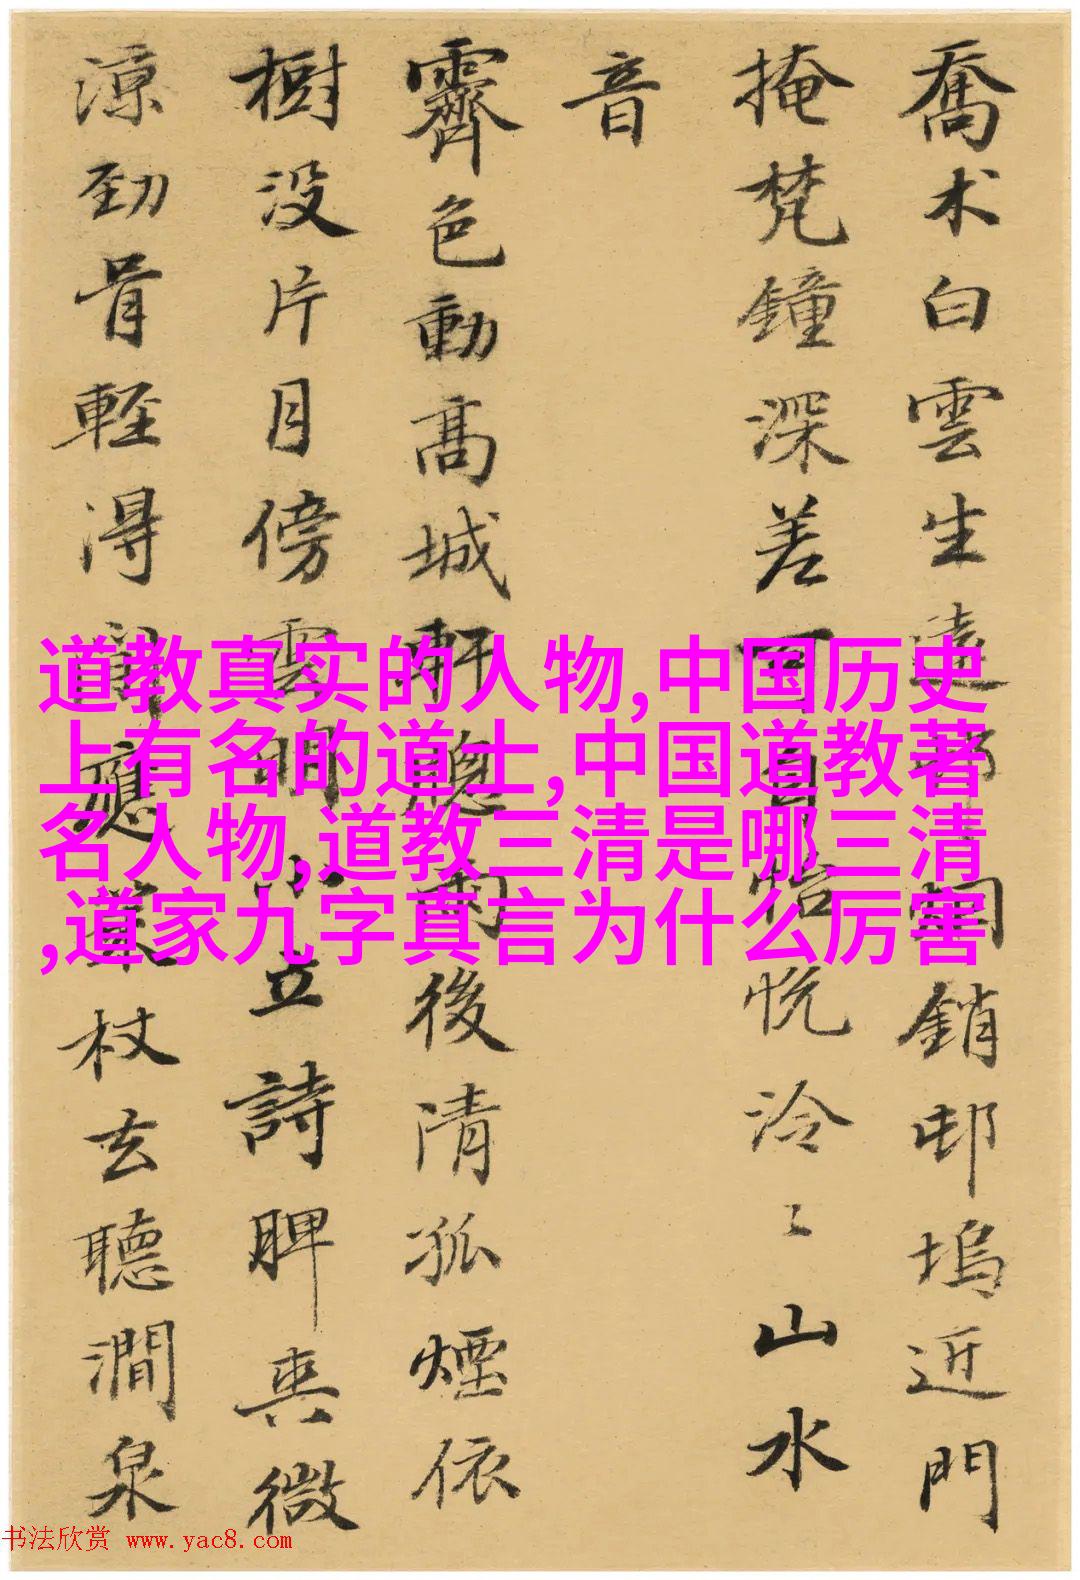 喬木白雲生遠
銷邨塢近門
掩梵鐘深差可
悦泠〻山水
音
霽色動高城軒
後清孤煙依
樹没片月傍雲
立詩脾與微
涼勁骨輕得
杖玄聽澗泉
道教真实的人物,中国历史
上有名的道士,中国道教著
名人物,道教三清是哪三清
,道家九字真言为什么厉害
书法欣赏 www.yac8.com